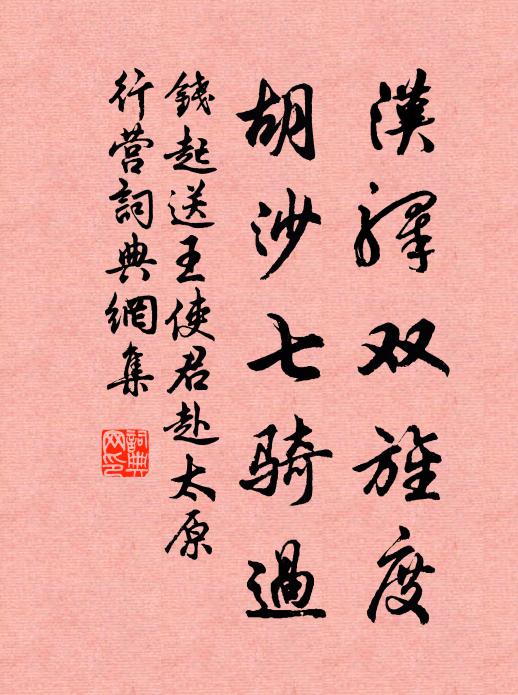 漢驛双旌度
胡沙七騎過
錢起送王使君赴太原
行营詞典網集
詞典
网印